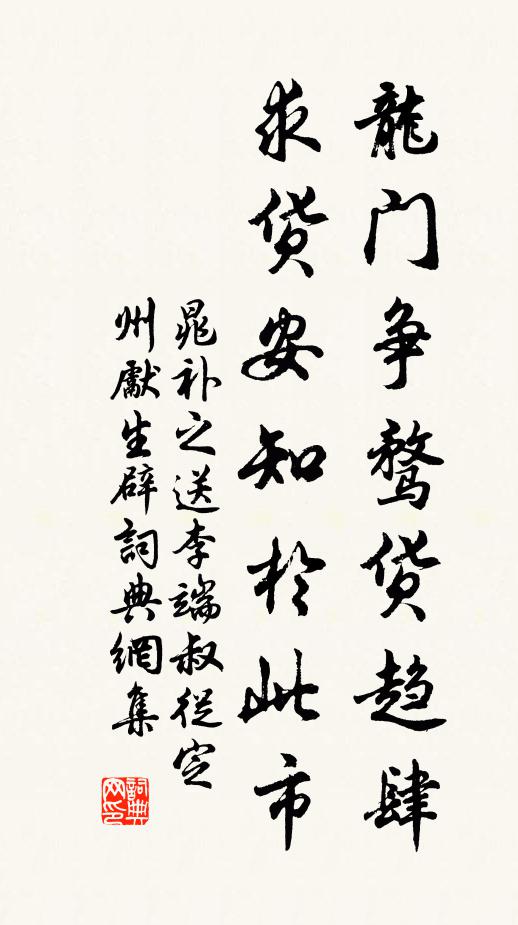 龍门争鹜贷趋肆
求贷安知於此市
晁补之送李端叔從定
州獻生辟詞典網集
詞典
网印